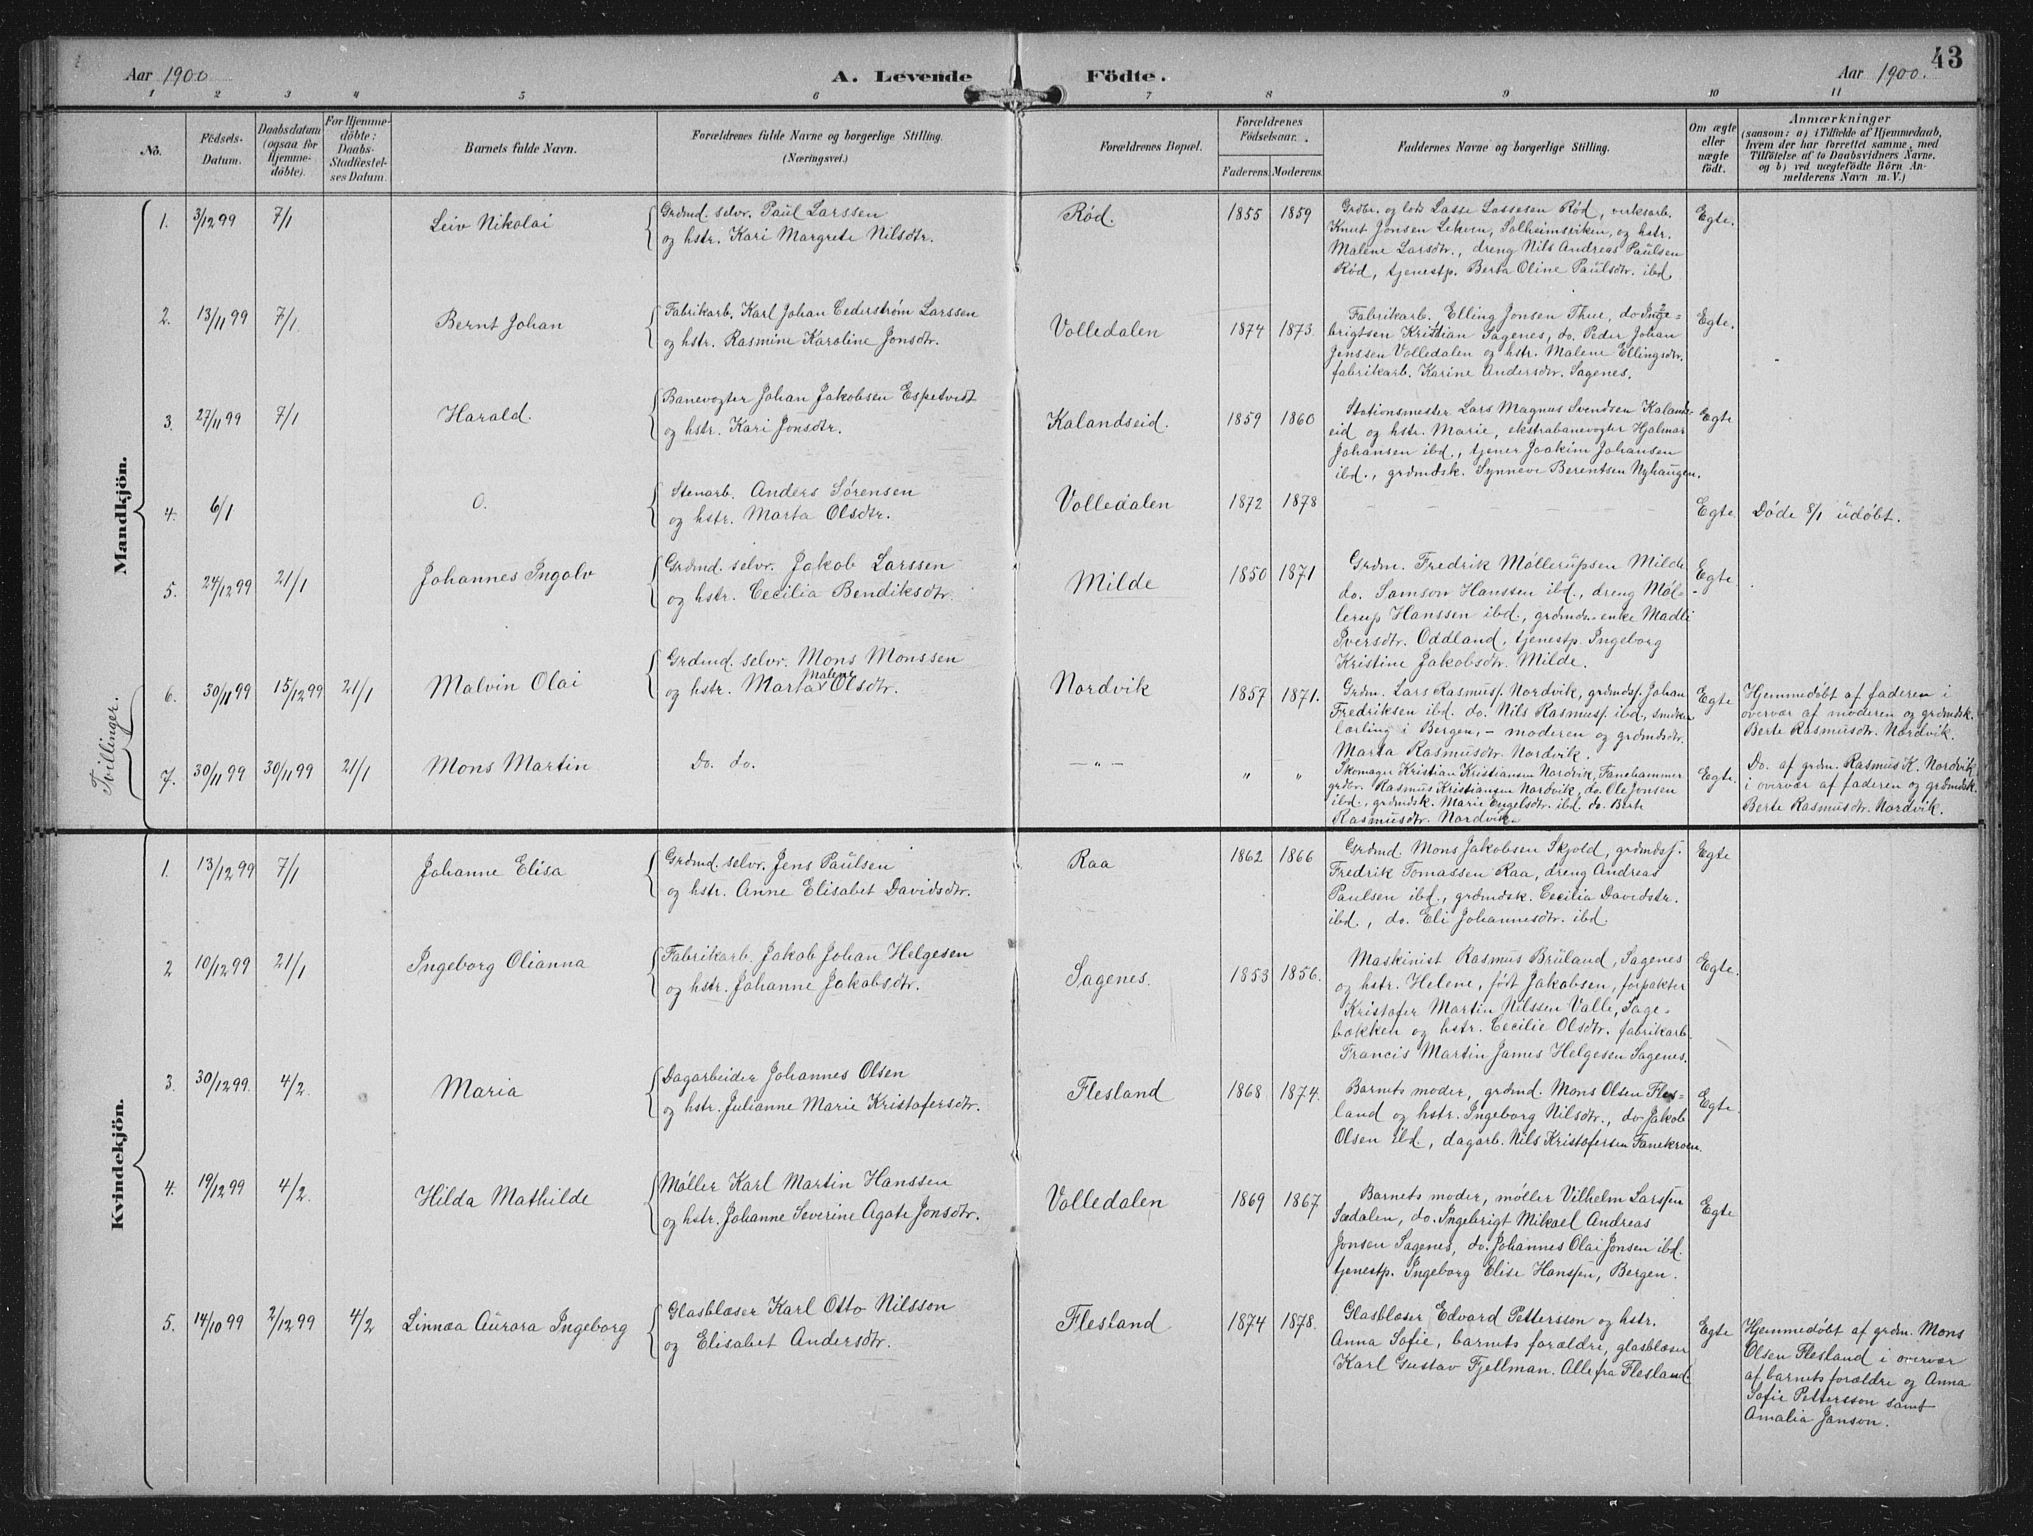 43
Aar 1900
A. Levende Födte.
Aar 1900.
1 2 3 4 5 6 7 8 9 10 11
No.
Födsels-
Datum.
Daabsdatum
(ogsaa for
Hjemme-
döbte).
For Hjemme-
döbte:
Daabs-
Stadfæstel-
ses Datum.
Barnets fulde Navn.
Forældrenes fulde Navne og borgerlige Stilling.
(Næringsvei.)
Forældrenes Bopæl.
Forældrenes
Födselsaar.
Faderens. Moderens.
Faddernes Navne og borgerlige Stilling.
Om ægte
eller
uægte
födt.
Anmærkninger
(saasom: a) i Tilfælde af Hjemmedaab,
hvem der har forrettet samme, med
Tilföielse af to Daabsvidners Navne,
og b) ved uægtefödte Börn An-
melderens Navn m. V.)
Mandkjön.
1. 3/12 99 7/1 Leiv Nikolai
Grdmd. selvr. Paul Larssen
og hstr. Kari Margrete Nilsdtr.
Rød. 1855 1859
Grdbr. og lods Lasse Lassesen Rød, verksarb.
Knut Jonsen Lekven, Solheimsviken, og hstr.
Malene Larsdtr., dreng Nils Andreas Paulsen
Rød, tjenestp. Berta Oline Paulsdtr. ibd
Egte.
2. 13/11 99 7/1. Bernt Johan
Fabrikarb. Karl Johan Cederstrøm Larssen
og hstr. Rasmine Karoline Jonsdtr.
Volledalen 1874 1873.
Fabrikarb. Elling Jonsen Thue, do Inge-
brigtsen Kristian Sagenes, do. Peder Johan
Jenssen Volledalen og hstr. Malene Ellingsdtr.
fabrikarb. Karine Andersdtr. Sagenes.
Egte.
3. 27/11 99 7/1 Harald.
Banevogter Johan Jakobsen Espetvedt
og hstr. Kari Jonsdtr.
Kalandseid. 1859 1860
Stationsmester Lars Magnus Svendsen Kalands-
eid og hstr. Marie, ekstrabanevogter Hjalmar
Johansen ibd., tjener Joakim Johansen
ibd., grdmdsk. Synneve Berentsen Nyhaugen.
Egte
4. 6/1 O.
Stenarb. Anders Sørensen
og hstr. Marta Olsdtr.
Volledalen 1872 1878 – – – –
Egte. Døde 8/1 udøbt.
5. 24/12 99 21/1 Johannes Ingolv
Grdmd. selvr. Jakob Larssen
og hstr. Cecilia Bendiksdtr.
Milde 1850 1871
Grdm. Fredrik Møllerupsen Milde
do. Samson Hanssen ibd., dreng Møl-
lerup Hanssen ibd, grdmds enke Madli
Iversdtr. Oddland, tjenestp. Ingeborg
Kristine Jakobsdtr. Milde.
Egte
Tvillinger.
6. 30/11 99 15/12 99 21/1 Malvin Olai
Grdmd. selvr. Mons Monssen
Malene
og hstr. Marta Olsdtr.
Nordvik 1857 1871.
Grdm. Lars Rasmusf. Nordvik, grdmdsf. Johan
Fredriksen ibd. do. Nils Rasmusf. ibd., snedker
lærling i Bergen, – moderen og grdmdsdtr.
Marta Rasmusdtr. Nordvik.
Egte
Hjemmedøbt af faderen i
overvær af moderen og grdmdsk.
Berte Rasmusdtr. Nordvik.
7. 30/11 99 30/11 99 21/1 Mons Martin
Do. do.
– „ – „ „
Skomager Kristian Kristiansen Nordvik, Fanehammer
grdbr. Rasmus Kristiansen Nordvik, do. Ole Jonsen
ibd., grdmdsk. Marie Engelsdtr. ibd. do. Berte
Rasmusdtr. Nordvik.
Egte.
Do. af grdm. Rasmus K. Nordvik
i overvær af faderen og grdmdsk.
Berte Rasmusdtr. Nordvik.
Kvindekjön.
1. 13/12 99 7/1 Johanne Elisa
Grdmd. selvr. Jens Paulsen
og hstr. Anne Elisabet Davidsdtr.
Raa 1862 1866
Grdmd. Mons Jakobsen Skjold, grdmdsf.
Fredrik Tomassen Raa, dreng Andreas
Paulsen ibd., grdmdsk. Cecilia Davidstr.
ibd., do. Eli Johannesdtr. ibd.
Egte
2 10/12 99 21/1 Ingeborg Olianna
Fabrikarb. Jakob Johan Helgesen
og hstr. Johanne Jakobsdtr.
Sagenes. 1853 1856.
Maskinist Rasmus Brüland, Sagenes
og hstr. Helene, født Jakobsen, forpakter
Kristofer Martin Nilssen Valle, Sage-
bækken og hstr. Cecilie Olsdtr. fabrikarb.
Francis Martin James Helgesen Sagenes.
Egte.
3. 30/12 99. 4/2. Maria
Dagarbeider Johannes Olsen
og hstr. Julianne Marie Kristofersdtr.
Flesland 1868 1874.
Barnets moder, grdmd. Mons Olsen Fles-
land og hstr. Ingeborg Nilsdtr., do. Jakob
Olsen ibd., dagarb. Nils Kristofersen Fanekroen.
Egte.
4. 19/12 99 4/2. Hilda Mathilde
Møller Karl Martin Hanssen
og hstr. Johanne Severine Agate Jonsdtr.
Volledalen 1869 1867
Barnets moder, møller Vilhelm Larssen
Sædalen, do. Ingebrigt Mikael Andreas
Jonsen Sagenes, do. Johannes Olai Jonsen ibd.
tjenestp. Ingeborg Elise Hansen, Bergen.
Egte
5. 14/10 99 2/12 99 4/2 Linnæa Aurora Ingeborg
Glasblæser Karl Otto Nilsson
og Elisabet Andersdtr.
Flesland 1874 1878.
Glasblæser Edvard Pettersson og hstr.
Anna Sofie, barnets forældre, glasblæser
Karl Gustav Fjellman. Alle fra Flesland.
Egte
Hjemmedøbt af grdm. Mons
Olsen Flesland i overvær
af barnets forældre og Anna
Sofie Pettersson samt
Amalia Janson.